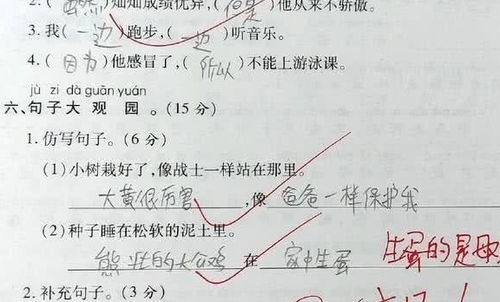 2.(虽然)灿灿成绩优异,(但是)他从来不骄傲。
3.我(一边)跑步,(一边)听音乐。
4.(因为)他感冒了,(所以)不能上游泳课。
jù zi dà guān yuán
六、句子大观园。(15分)
1.仿写句子。(6分)
(1)小树栽好了,像战士一样站在那里。
大黄很厉害,像爸爸一样保护我
(2)种子睡在松软的泥土里。
熊壮的大公鸡在家中生蛋
生蛋的是母
2.补充句子。(3分)